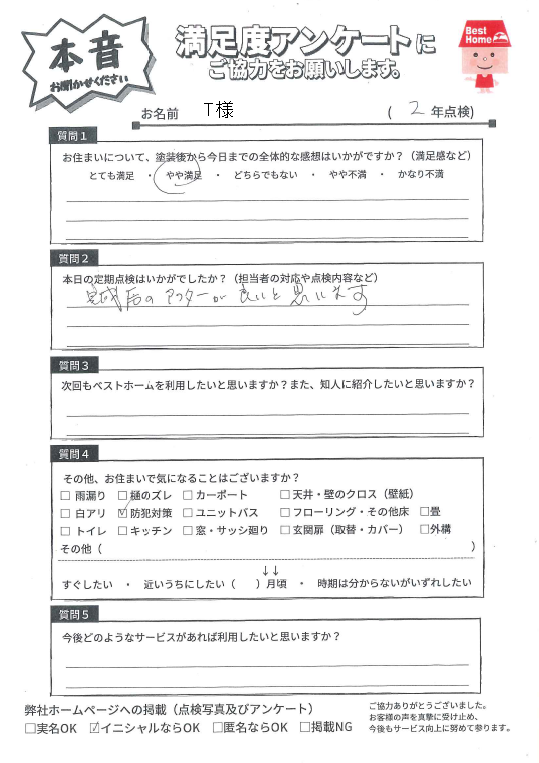 本音
お聞かせください
満足度アンケートに
ご協力をお願いします。
Best
Home
お名前 T様 ( 2 年点検)
質問1
お住まいについて、塗装後から今日までの全体的な感想はいかがですか？（満足感など）
とても満足 ・ やや満足 ・ どちらでもない ・ やや不満 ・ かなり不満
質問2
本日の定期点検はいかがでしたか？（担当者の対応や点検内容など）
完成后のアフターが良いと思います
質問3
次回もベストホームを利用したいと思いますか？また、知人に紹介したいと思いますか？
質問4
その他、お住まいで気になることはございますか？
□ 雨漏り □ 樋のズレ □ カーポート □ 天井・壁のクロス（壁紙）
□ 白アリ ☑ 防犯対策 □ ユニットバス □ フローリング・その他床 □畳
□ トイレ □ キッチン □ 窓・サッシ廻り □ 玄関扉（取替・カバー） □外構
その他（ ）
↓↓
すぐしたい ・ 近いうちにしたい（ ）月頃 ・ 時期は分からないがいずれしたい
質問5
今後どのようなサービスがあれば利用したいと思いますか？
弊社ホームページへの掲載（点検写真及びアンケート）
□実名OK ☑イニシャルならOK □匿名ならOK □掲載NG
ご協力ありがとうございました。
お客様の声を真摯に受け止め、
今後もサービス向上に努めて参ります。